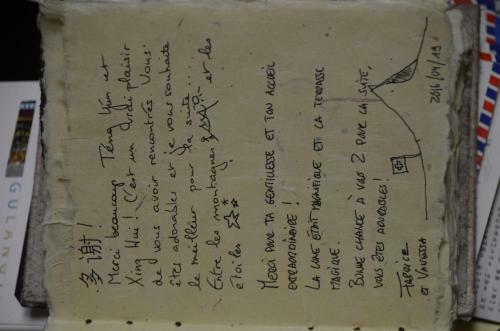 多谢!
Merci beaucoup Têng Yun et
Xing Hui! C'est un vrai plaisir
de vous avoir rencontrés. Vous
êtes adorables et je vous souhaite
le meilleur pour la suite....
Entre les montagnes et les
étoiles
MERCI POUR TA GENTILLESSE ET TON ACCUEIL
EXTRAORDINAIRE!
LA LUNE ÉTAIT MAGNIFIQUE ET LA TERRASSE
MAGIQUE.
BONNE CHANCE À VOUS 2 POUR LA SUITE,
VOUS ÊTES ADORABLES!
FABRICE
ET VANESSA
2016/04/19
GULAN